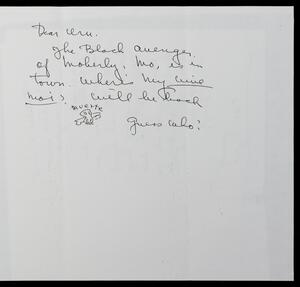 Dear
The Black Avenger
of Moberly, Mo, is in
town. Where's my
will be back
muerte
Guess who?